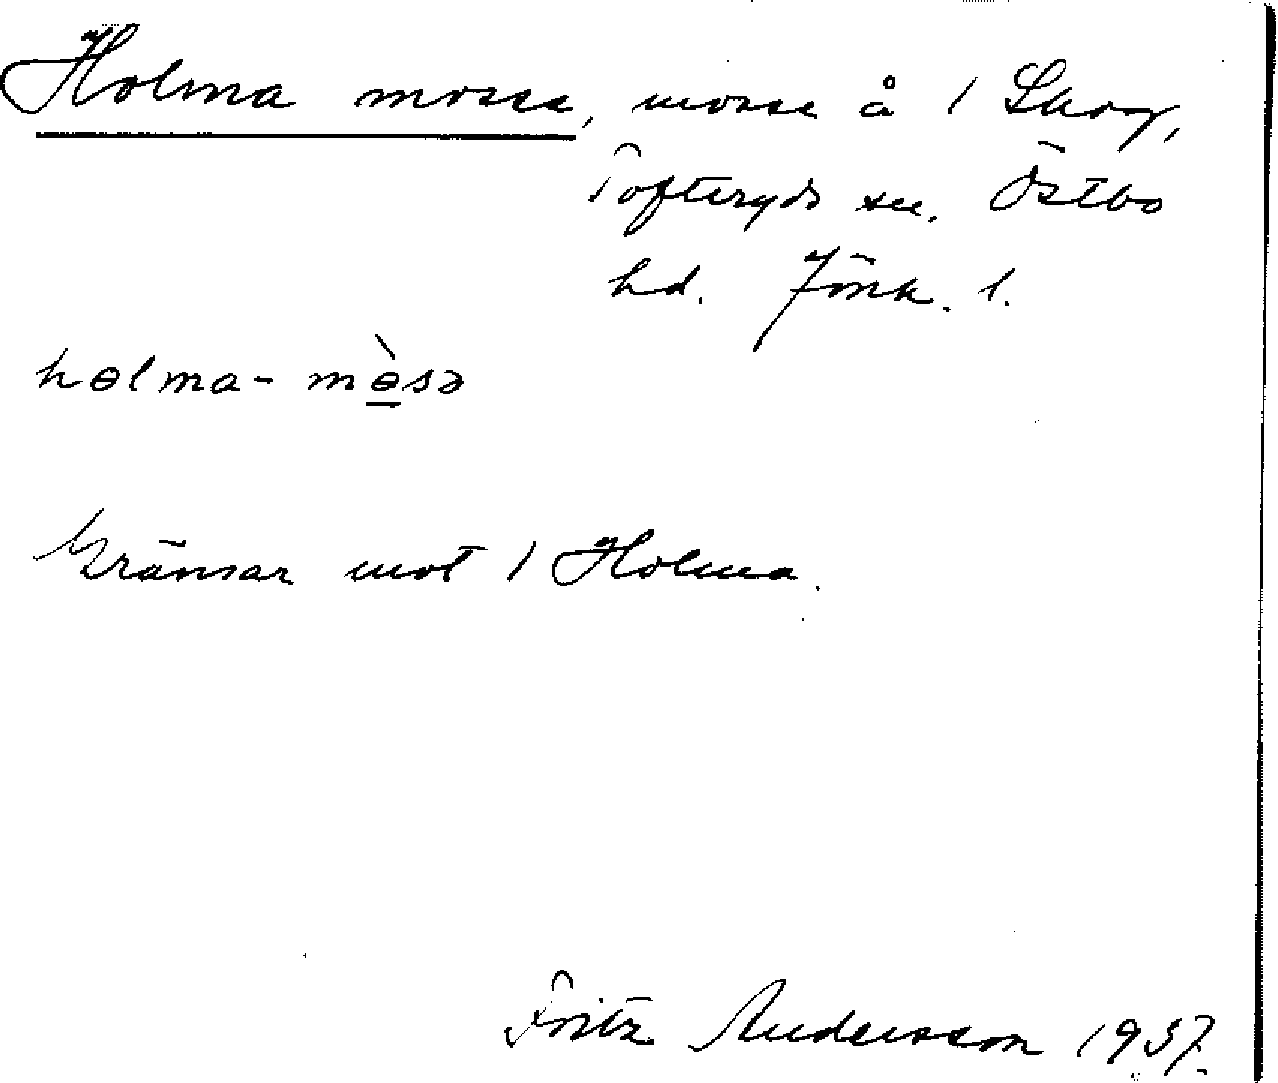 Holma mosse, mosse å / Skog,
Tofteryds sn. Östbo
hd. Jönk. l.
hɵlma- mɵ̀sə
Gränsar mot / Holma.
Fritz Andersson 1937.